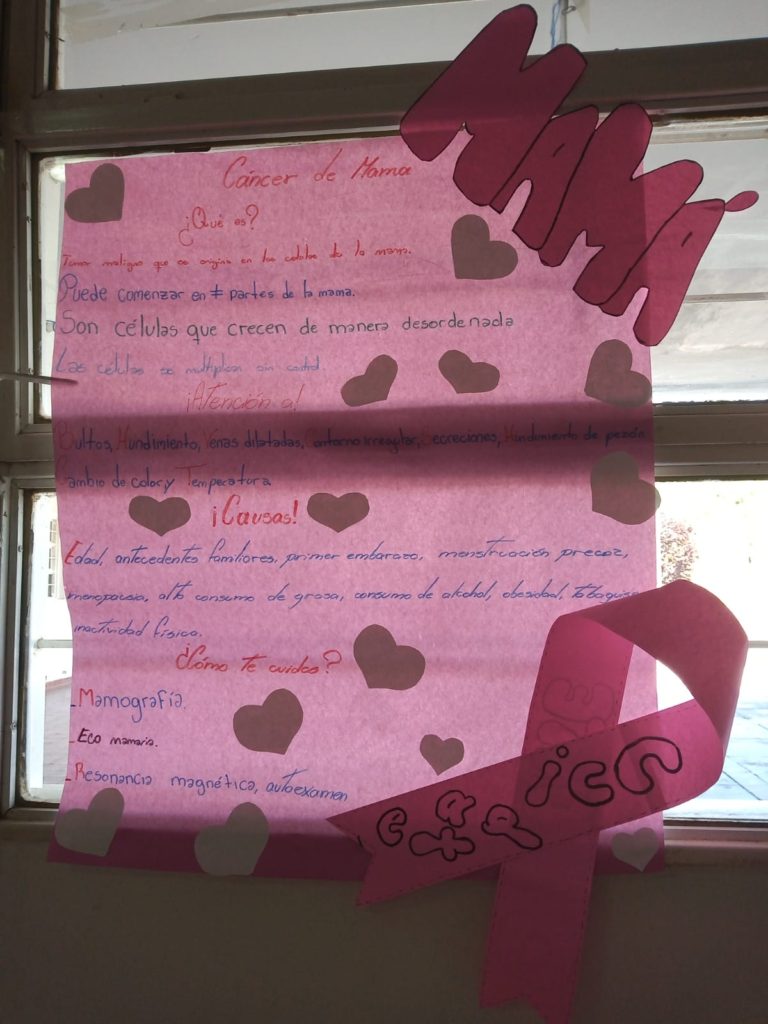 MAMÁ
Cáncer de Mama
¿Qué es?
Tumor maligno que se origina en las celulas de la mama.
Puede comenzar en ≠ partes de la mama.
Son células que crecen de manera desordenada
Las celulas se multiplican sin control.
¡Atención a!
Bultos, Hundimiento, Venas dilatadas, Contorno irregular, Secreciones, Hundimiento de pezón
Cambio de color y Temperatura
¡Causas!
Edad, antecedentes familiares, primer embarazo, menstruación precoz,
menopausia, alto consumo de grasa, consumo de alcohol, obesidad,
inactividad física.
¿Cómo te cuidas?
-Mamografía.
-Eco mamaria.
-Resonancia magnética, autoexamen